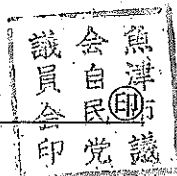 魚津市議
会自民党
議員会印
㊞